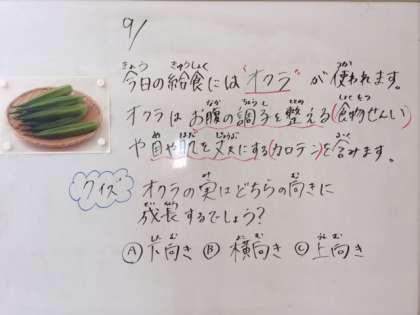 9/
今日の給食には"オクラ"が使われます。
オクラはお腹の調子を整える(食物せんい)
や目や肌を丈夫にする(カロテン)を含みます。
クイズ オクラの実はどちらの向きに
成長するでしょう?
Ⓐ下向き Ⓑ横向き Ⓒ上向き